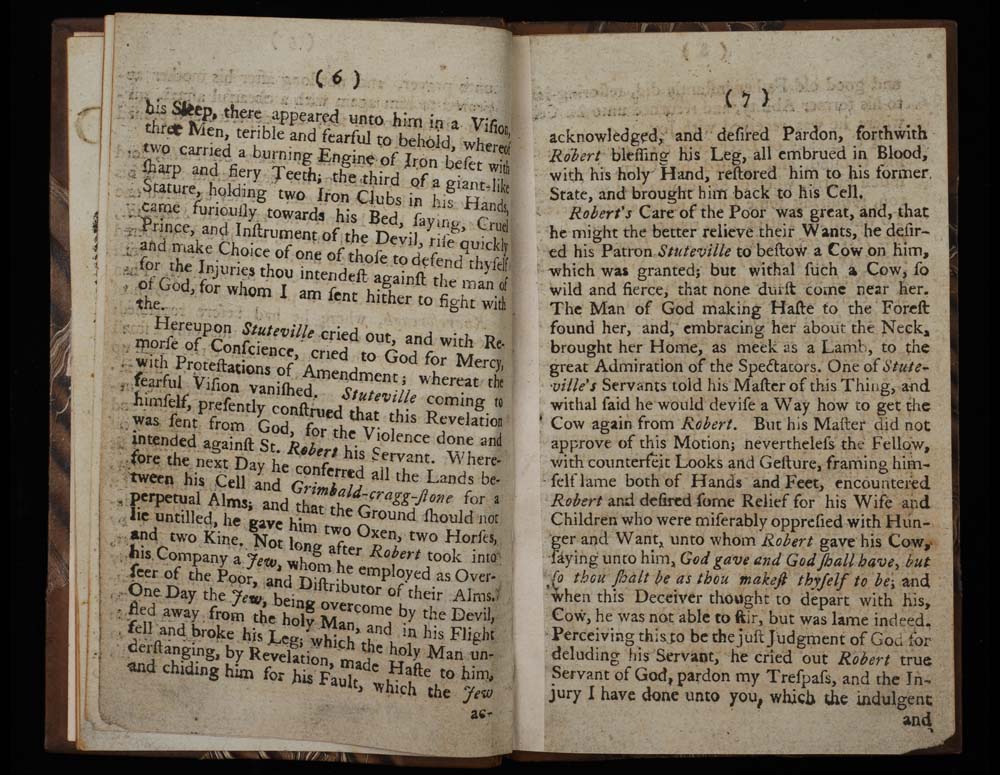 ( 6 )
his Sleep, there appeared unto him in a Viſion,
three Men, terible and fearful to behold, whereof
two carried a burning Engine of Iron beſet with
ſharp and fiery Teeth; the third of a giant-like
Stature, holding two Iron Clubs in his Hands,
came furiouſly towards his Bed, ſaying, Cruel
Prince, and Inſtrument of the Devil, riſe quickly
and make Choice of one of thoſe to defend thyſelf
for the Injuries thou intendeſt againſt the man of
of God, for whom I am ſent hither to fight with
the.
Hereupon Stuteville cried out, and with Re-
morſe of Conſcience, cried to God for Mercy,
with Proteſtations of Amendment; whereat the
fearful Viſion vaniſhed. Stuteville coming to
himſelf, preſently conſtrued that this Revelation
was ſent from God, for the Violence done and
intended againſt St. Robert his Servant. Where-
fore the next Day he conferred all the Lands be-
tween his Cell and Grimbald-cragg-ſtone for a
perpetual Alms; and that the Ground ſhould not
lie untilled, he gave him two Oxen, two Horſes,
and two Kine. Not long after Robert took into
his Company a Jew, whom he employed as Over-
ſeer of the Poor, and Diſtributor of their Alms.
One Day the Jew, being overcome by the Devil,
fled away from the holy Man, and in his Flight
fell and broke his Leg; which the holy Man un-
derſtanging, by Revelation, made Haſte to him,
and chiding him for his Fault, which the Jew
ac-
( 7 )
acknowledged, and deſired Pardon, forthwith
Robert bleſſing his Leg, all embrued in Blood,
with his holy Hand, reſtored him to his former
State, and brought him back to his Cell.
Robert's Care of the Poor was great, and, that
he might the better relieve their Wants, he deſir-
ed his Patron Stuteville to beſtow a Cow on him,
which was granted; but withal ſuch a Cow, ſo
wild and fierce, that none durſt come near her.
The Man of God making Haſte to the Foreſt
found her, and, embracing her about the Neck,
brought her Home, as meek as a Lamb, to the
great Admiration of the Spectators. One of Stute-
ville's Servants told his Maſter of this Thing, and
withal ſaid he would deviſe a Way how to get the
Cow again from Robert. But his Maſter did not
approve of this Motion; nevertheleſs the Fellow,
with counterfeit Looks and Geſture, framing him-
ſelf lame both of Hands and Feet, encountered
Robert and deſired ſome Relief for his Wife and
Children who were miſerably oppreſied with Hun-
ger and Want, unto whom Robert gave his Cow,
ſaying unto him, God gave and God ſhall have, but
ſo thou ſhalt be as thou makeſt thyſelf to be; and
when this Deceiver thought to depart with his,
Cow, he was not able to ſtir, but was lame indeed.
Perceiving this to be the juſt Judgment of God for
deluding his Servant, he cried out Robert true
Servant of God, pardon my Treſpaſs, and the In-
jury I have done unto you, which the indulgent
and